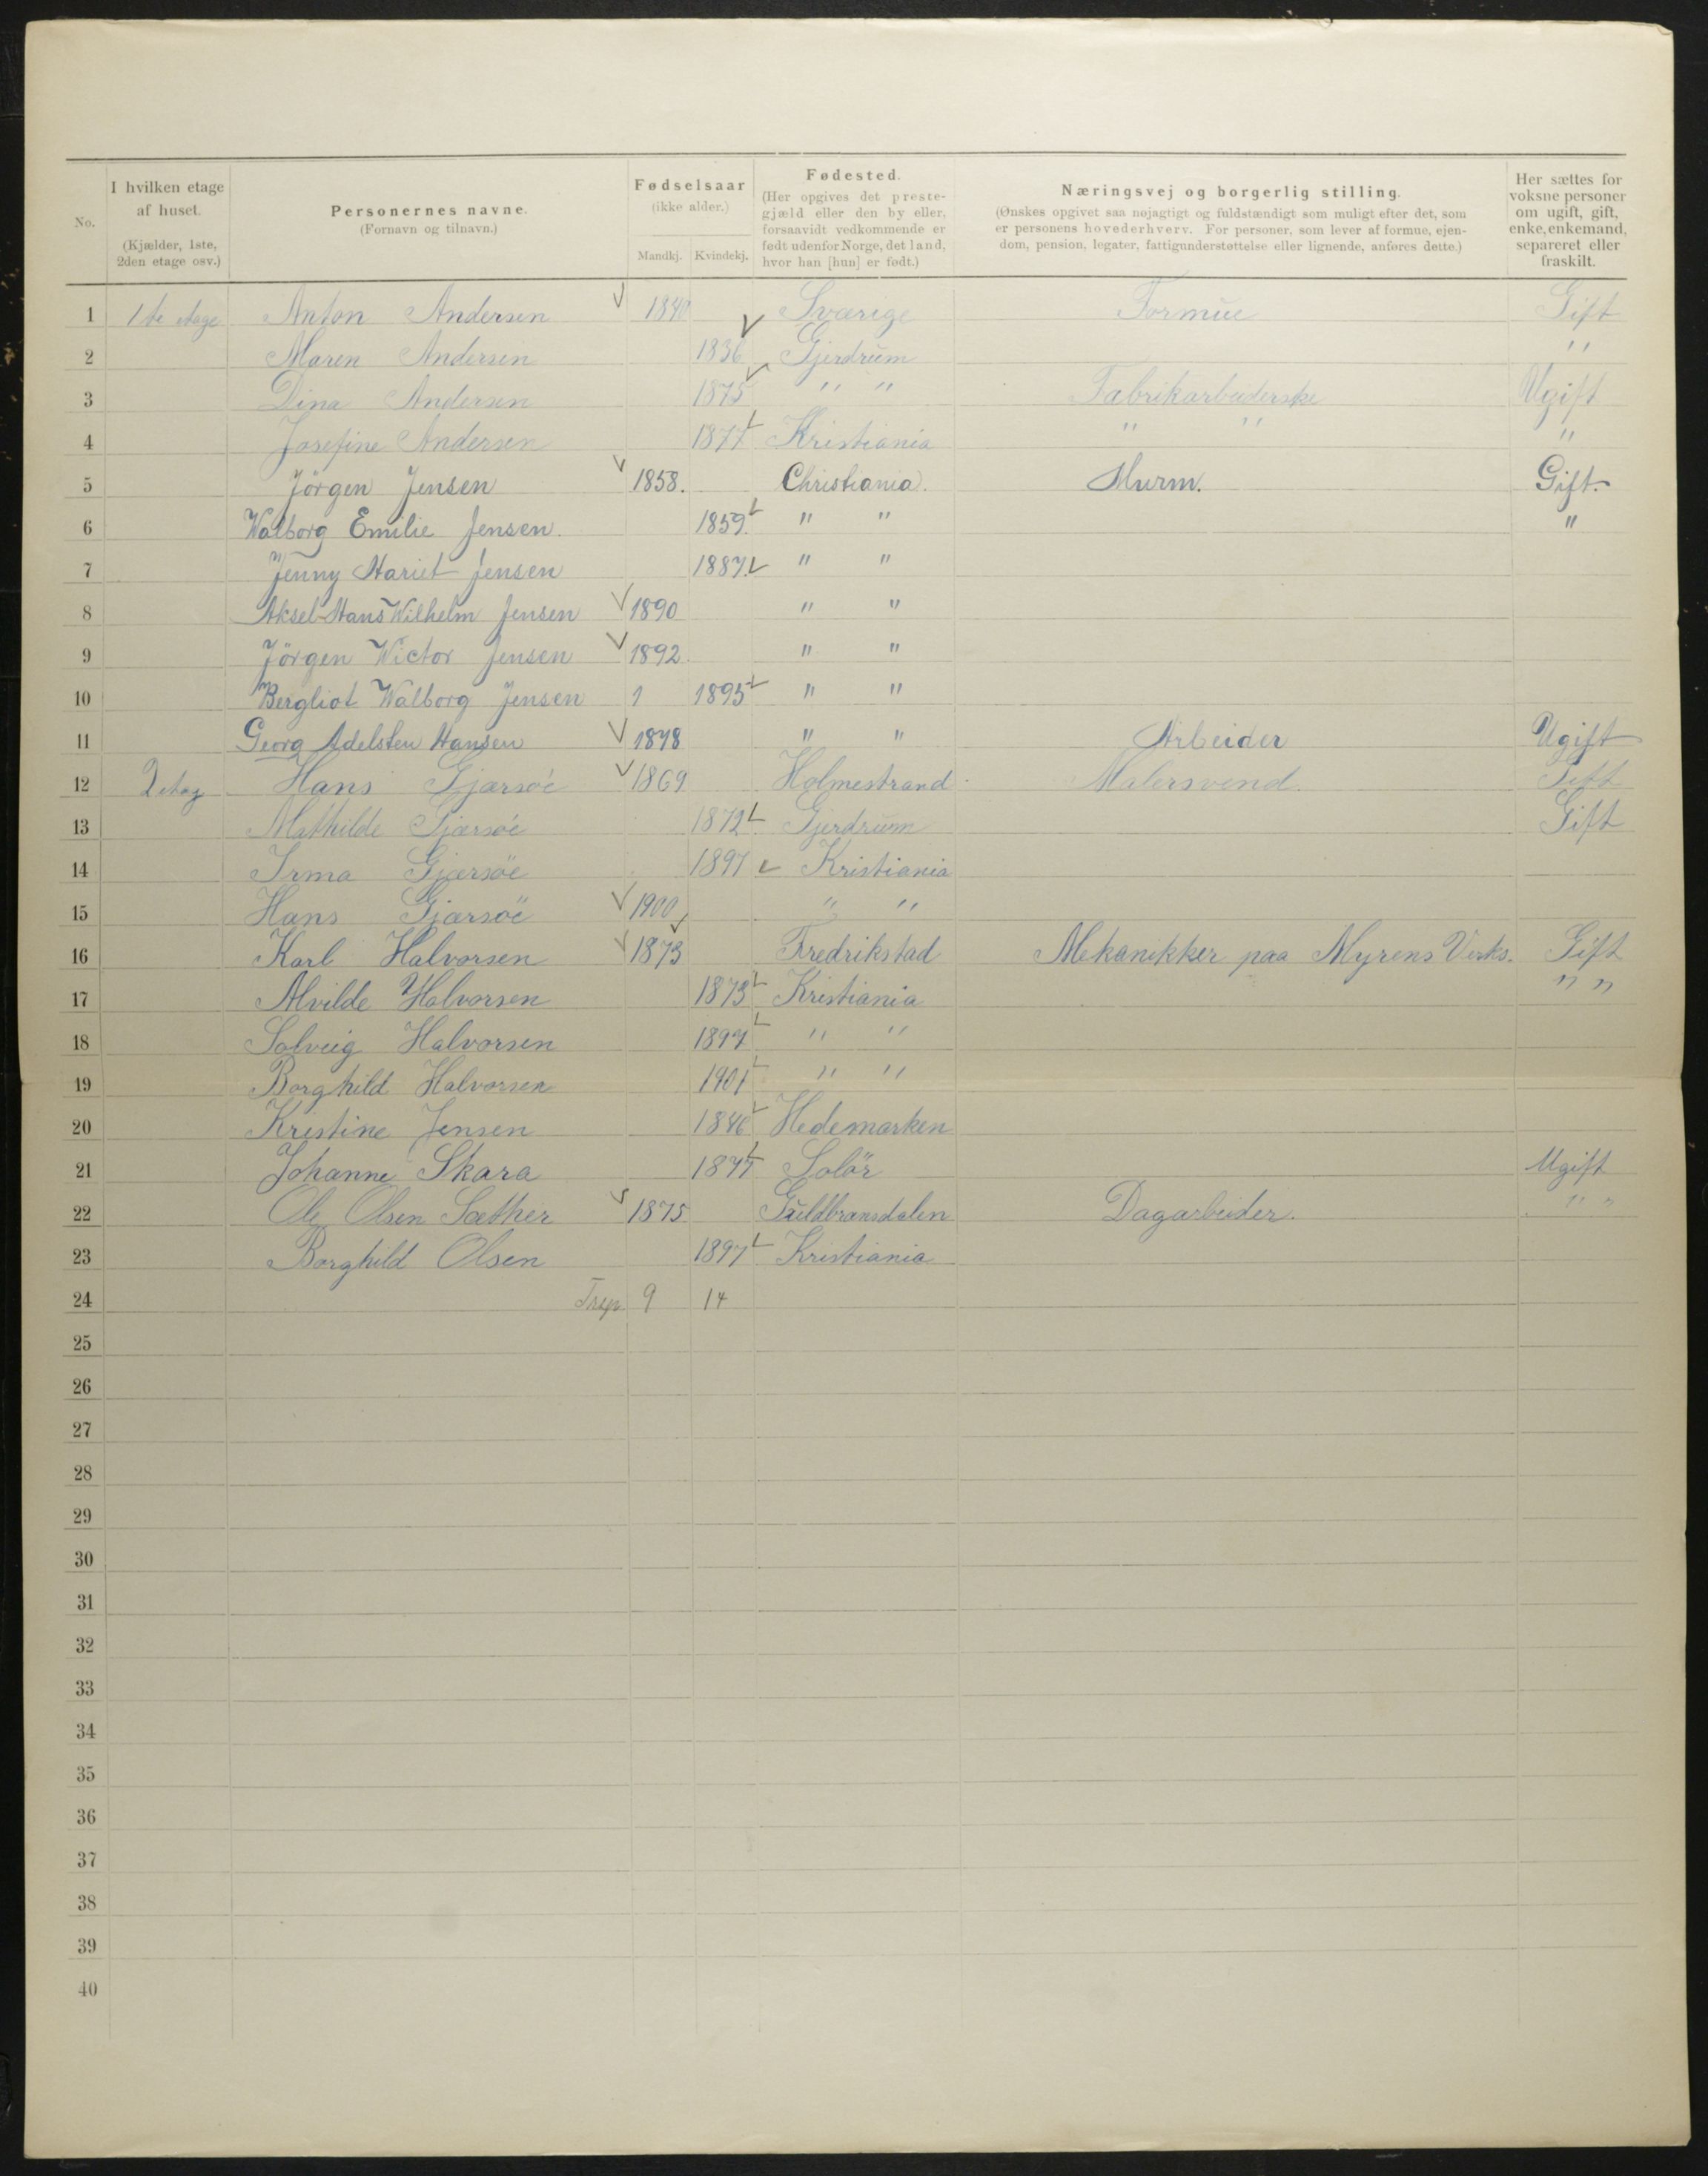 No.
I hvilken etage af huset. (Kjælder, 1ste, 2den etage osv.)
Personernes navne. (Fornavn og tilnavn.)
Fødselsaar (ikke alder.) Mandkj. Kvindekj.
Fødested. (Her opgives det prestegjæld eller den by eller, forsaavidt vedkommende er født udenfor Norge, det land, hvor han [hun] er født.)
Næringsvej og borgerlig stilling. (Ønskes opgivet saa nøjagtigt og fuldstændigt som muligt efter det, som er personens hovederhverv. For personer, som lever af formue, ejendom, pension, legater, fattigunderstøttelse eller lignende, anføres dette.)
Her sættes for voksne personer om ugift, gift, enke, enkemand, separeret eller fraskilt.
1 1te etage Anton Andersen 1840 Sværige Formue Gift
2 Maren Andersen 1836 Gjerdrum " "
3 Dina Andersen 1875 " " Fabrikarbeiderske Ugift
4 Josefine Andersen 1877 Kristiania " " "
5 Jörgen Jensen 1858. Christiania. Murm. Gift.
6 Walborg Emilie Jensen. 1859. " " "
7 Jenny Hariet Jensen 1887. " "
8 Aksel Hans Wilhelm Jensen 1890 " "
9 Jörgen Wictor Jensen 1892. " "
10 Bergliot Walborg Jensen 1 1895 " "
11 Georg Adelsten Hansen 1878 " " Arbeider Ugift
12 2 etag Hans Gjærsöe 1869 Holmestrand Malersvend. Gift
13 Mathilde Gjærsöe 1872 Gjerdrum Gift
14 Irma Gjærsöe 1897 Kristiania
15 Hans Gjærsöe 1900 " "
16 Karl Halvorsen 1873 Fredrikstad Mekanikker paa Myrens Verks. Gift
17 Alvilde Halvorsen 1873 Kristiania " "
18 Solveig Halvorsen 1897 " "
19 Borghild Halvorsen 1901 " "
20 Kristine Jensen 1846 Hedemarken
21 Johanne Skara 1877 Solör Ugift
22 Ole Olsen Sæther 1875 Guldbransdalen Dagarbeider. " "
23 Borghild Olsen 1897 Kristiania
24 9 14
25
26
27
28
29
30
31
32
33
34
35
36
37
38
39
40